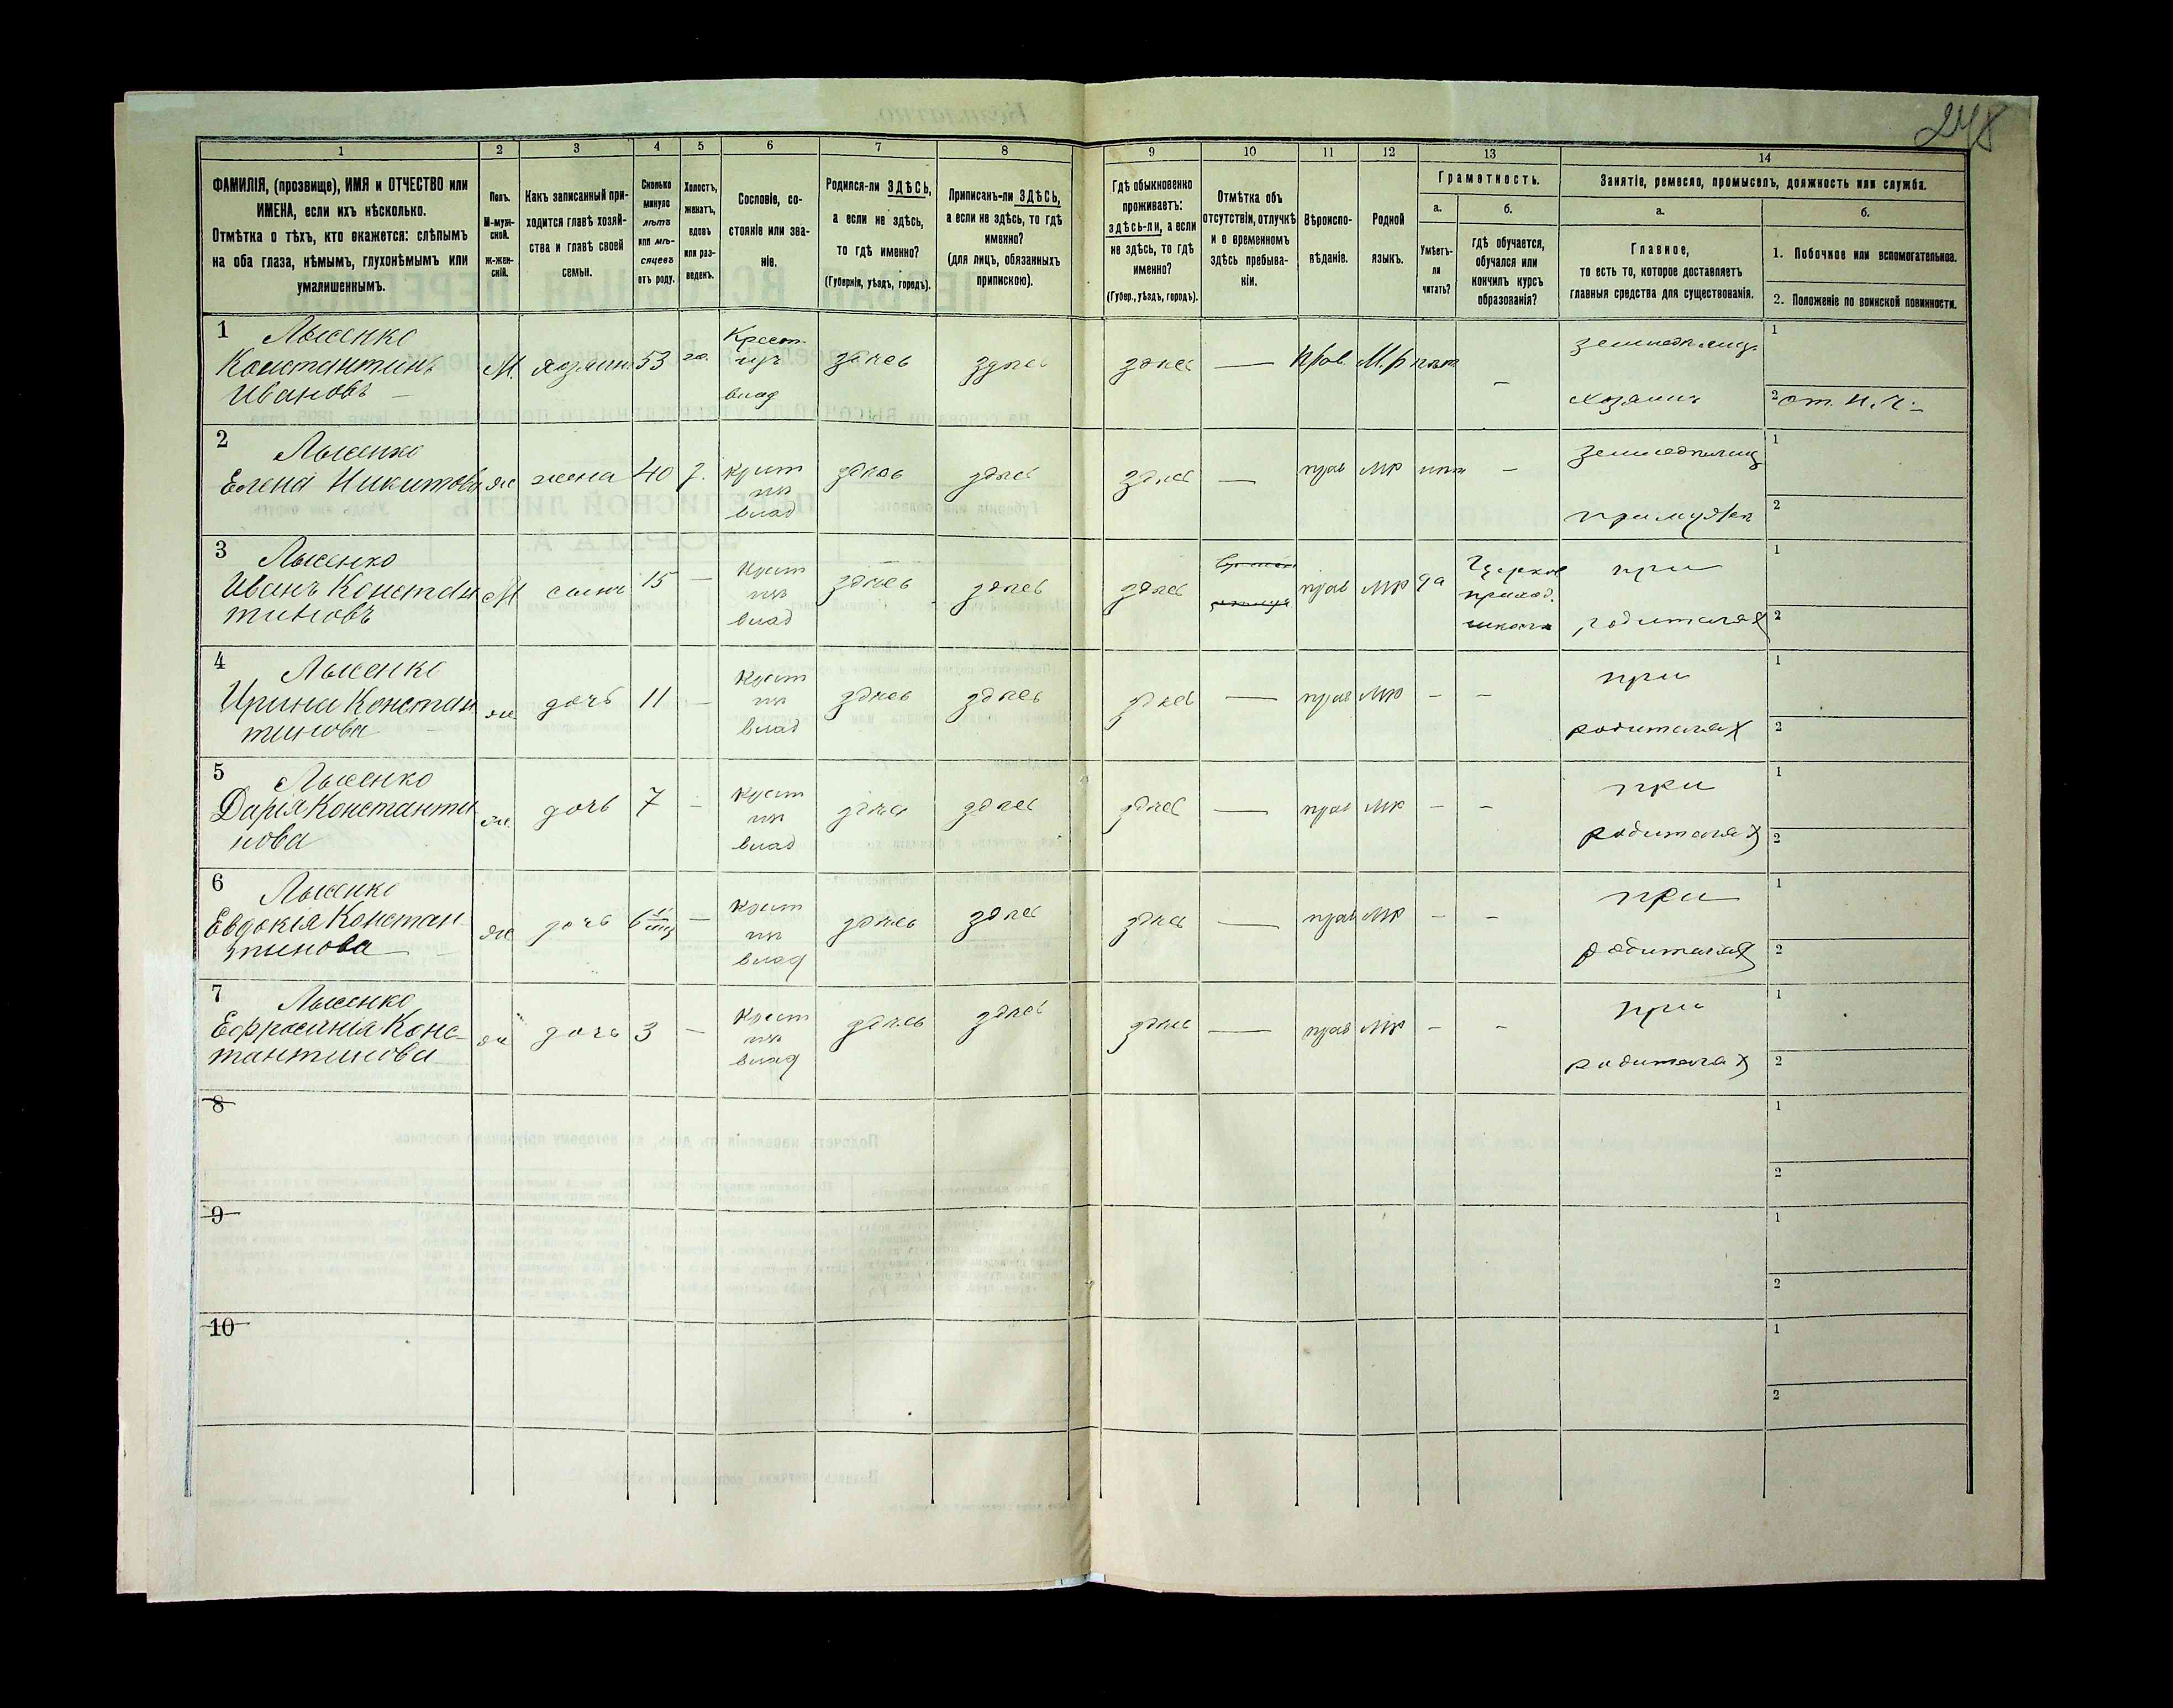 248
1 2 3 4 5 6 7 8 9 10 11 12 13 14
ФАМИЛІЯ, (прозвище), ИМЯ и ОТЧЕСТВО или
ИМЕНА, если ихъ нѣсколько.
Отмѣтка о тѣхъ, кто окажется: слѣпымъ
на оба глаза, нѣмымъ, глухонѣмымъ или
умалишеннымъ.
Полъ.
М-муж-
ской.
Ж-жен-
скій.
Какъ записанный при-
ходится главѣ хозяй-
ства и главѣ своей
семьи.
Сколько
минуло
лѣтъ
или мѣ-
сяцевъ
отъ роду.
Холостъ,
женатъ,
вдовъ
или раз-
веденъ.
Сословіе, со-
стояніе или зва-
ніе.
Родился-ли ЗДѢСЬ,
а если не здѣсь,
то гдѣ именно?
(Губернія, уѣздъ, городъ).
Приписанъ-ли ЗДѢСЬ,
а если не здѣсь, то гдѣ
именно?
(для лицъ, обязанныхъ
припискою).
Гдѣ обыкновенно
проживаетъ:
здѣсь-ли, а если
не здѣсь, то гдѣ
именно?
(Губер., уѣздъ, городъ).
Отмѣтка объ
отсутствіи, отлучкѣ
и о временномъ
здѣсь пребыва-
ніи.
Вѣроиспо-
вѣданіе.
Родной
языкъ.
Грамотность.
а.
Умѣетъ-
ли
читать?
б.
гдѣ обучается,
обучался или
кончилъ курсъ
образованія?
Занятіе, ремесло, промыселъ, должность или служба.
а.
Главное,
то есть то, которое доставляетъ
главныя средства для существованія.
б.
1. Побочное или вспомогательное.
2. Положеніе по воинской повинности.
1 Лысенко
Константинъ
Ивановъ
М. хозяин 53 Крест.
влад
здѣсь здѣсь здѣсь — Прав. М.р нѣт –
хозяинъ
1
2
2 Лысенко
Елена Никитова
ж жена 40 крест
влад
здѣсь здѣсь здѣсь — прав мр нѣт –
при мужѣ
1
2
3 Лысенко
Иванъ Констан
тиновъ
М сынъ 15 — крест
влад
здѣсь здѣсь здѣсь прав мр да
Церков
приход.
школа
при
родителях
1
2
4 Лысенко
Ирина Констан
тинова
ж дочь 11 — крест
влад
здѣсь здѣсь здѣсь — прав мр – –
при
родителях
1
2
5 Лысенко
Дарія Константи
нова
ж. дочь 7 — крест
влад
здѣсь здѣсь здѣсь — прав мр – –
при
родителях
1
2
6 Лысенко
Евдокія Констан
тинова
ж дочь 6 — крест
влад
здѣсь здѣсь здѣсь — прав мр – –
при
родителях
1
2
7 Лысенко
Ефросинія Конс-
тантинова
ж дочь 3 — крест
влад
здѣсь здѣсь здѣсь — прав мр – –
при
родителях
1
2
8
1
2
9
1
2
10
1
2